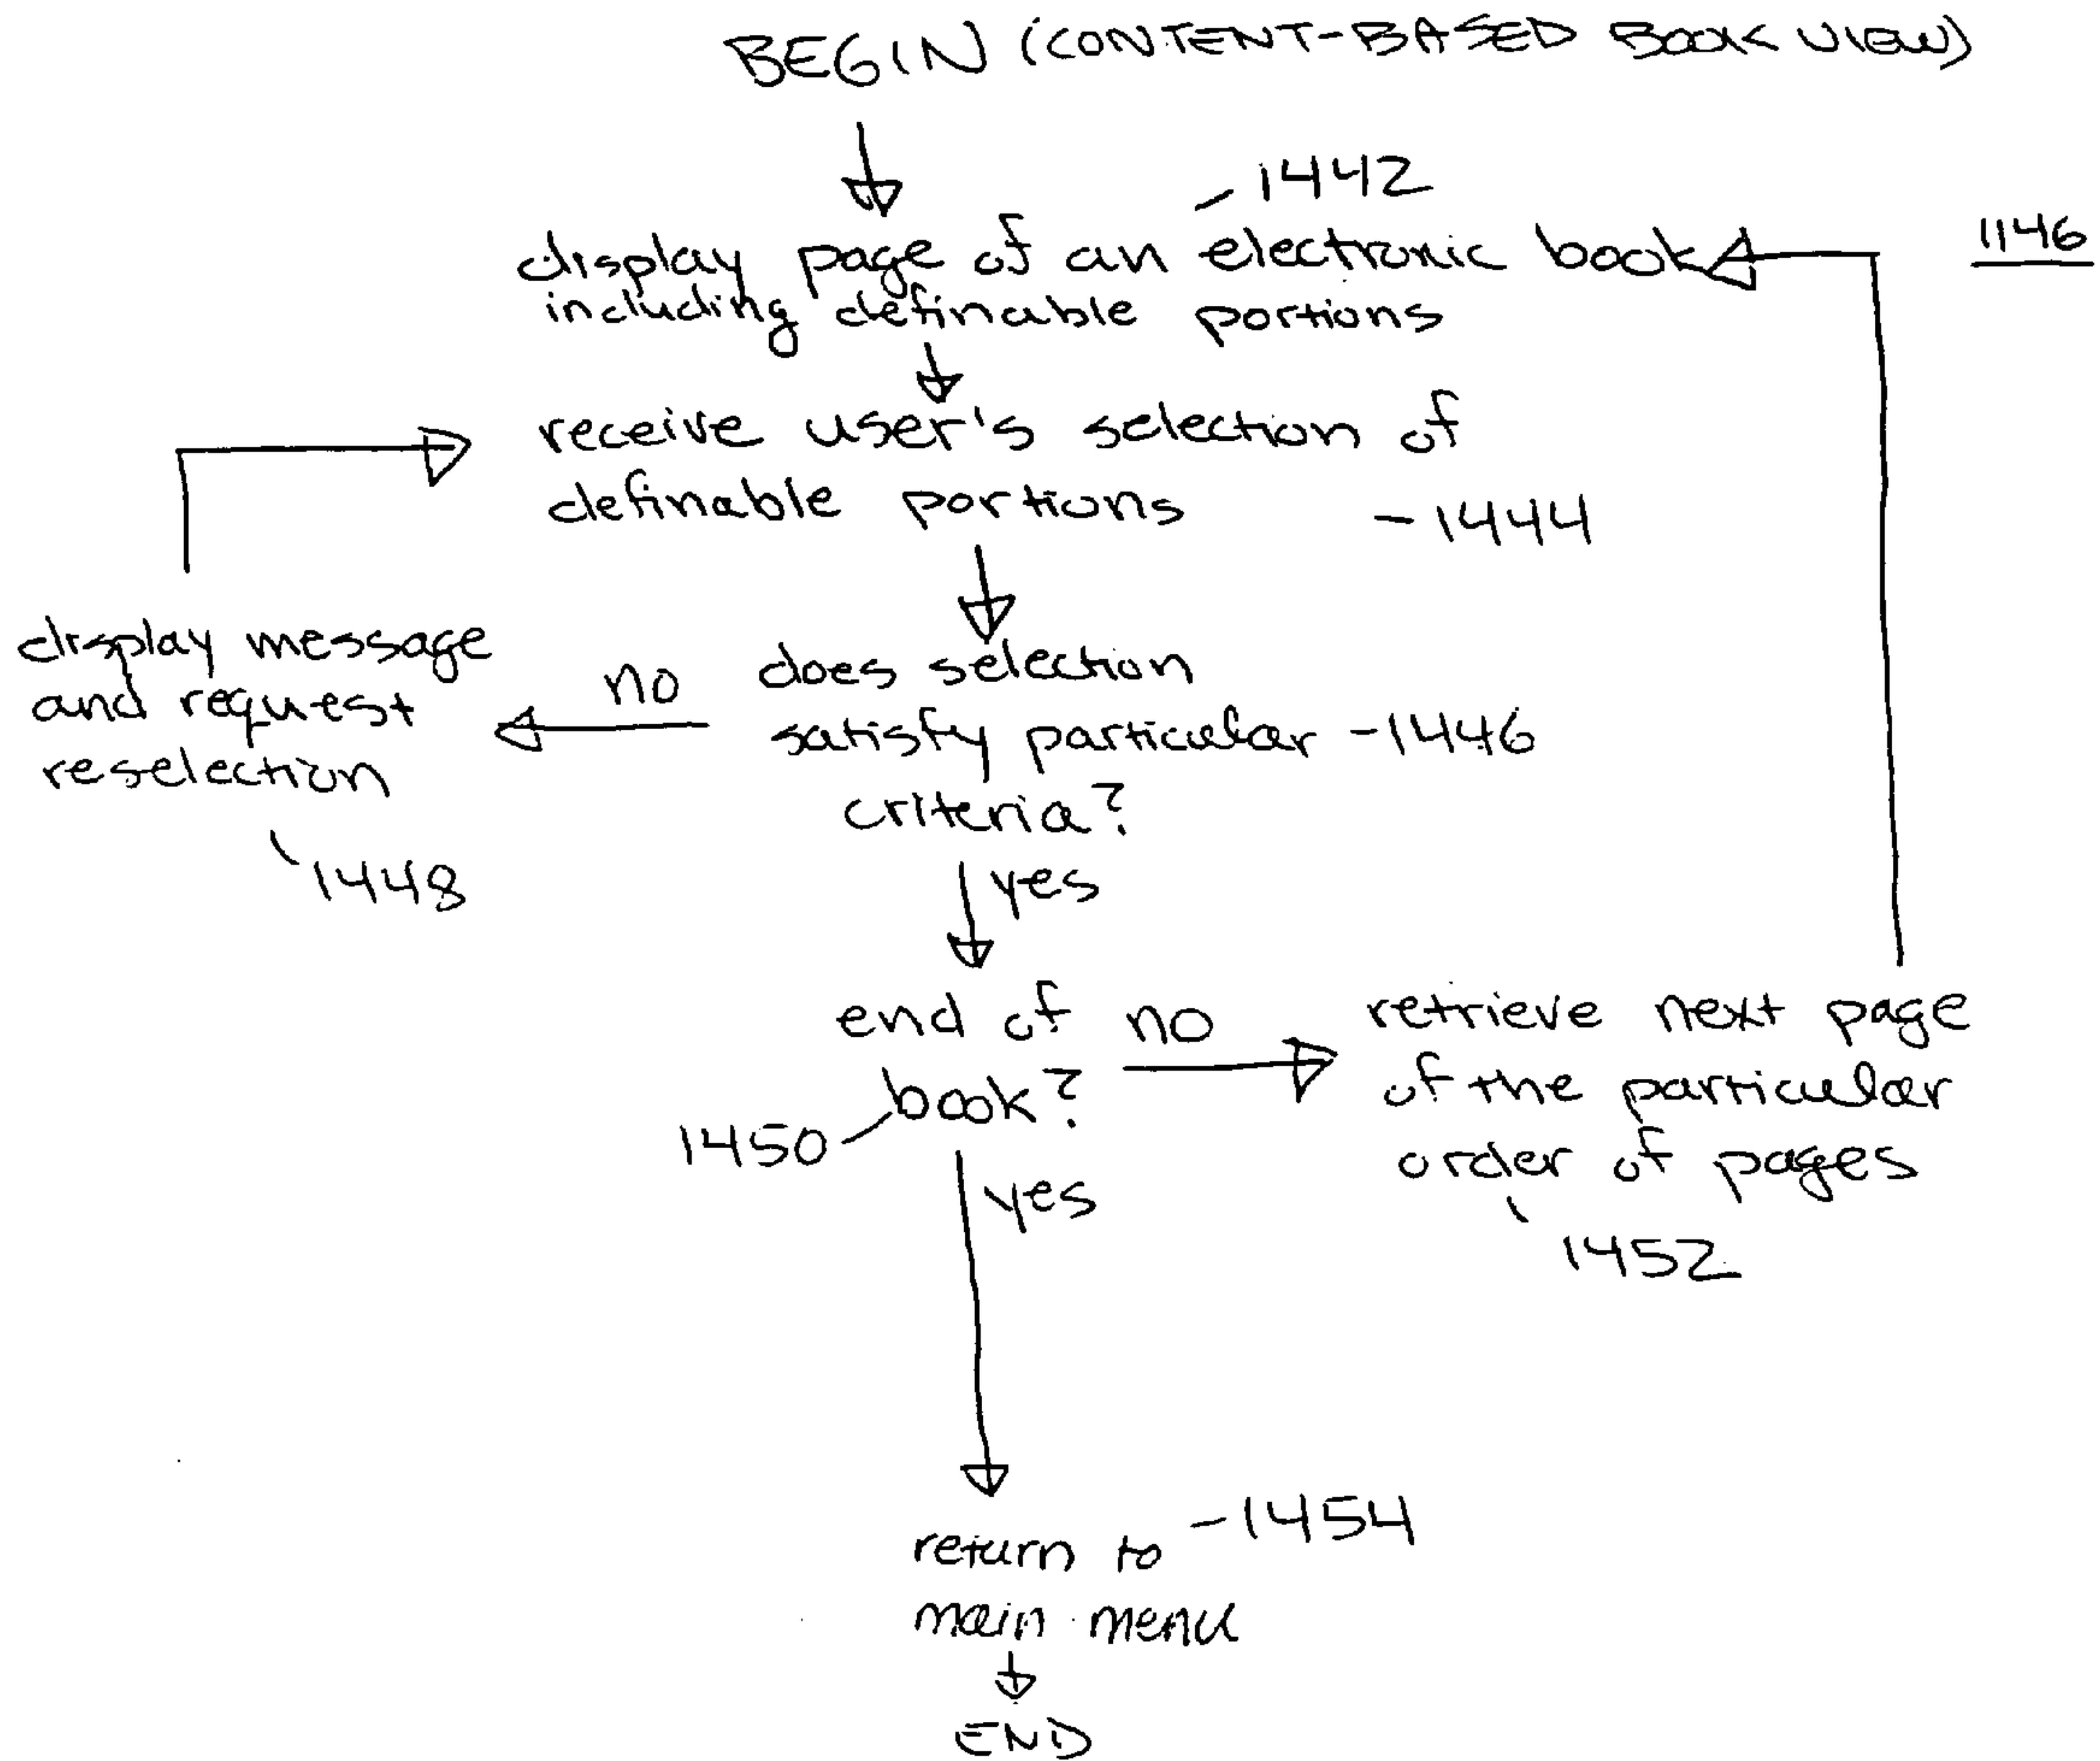 BEGIN (CONTENT-BASED BOOK VIEW)
-1442
1146
display page of an electronic book
including definable portions
receive user's selection of
definable portions -1444
display message
and request
reselection
1448
no
does selection
satisfy particular -1446
criteria?
yes
end of
book?
1450
no
retrieve next page
of the particular
order of pages
1452
yes
return to -1454
main menu
END